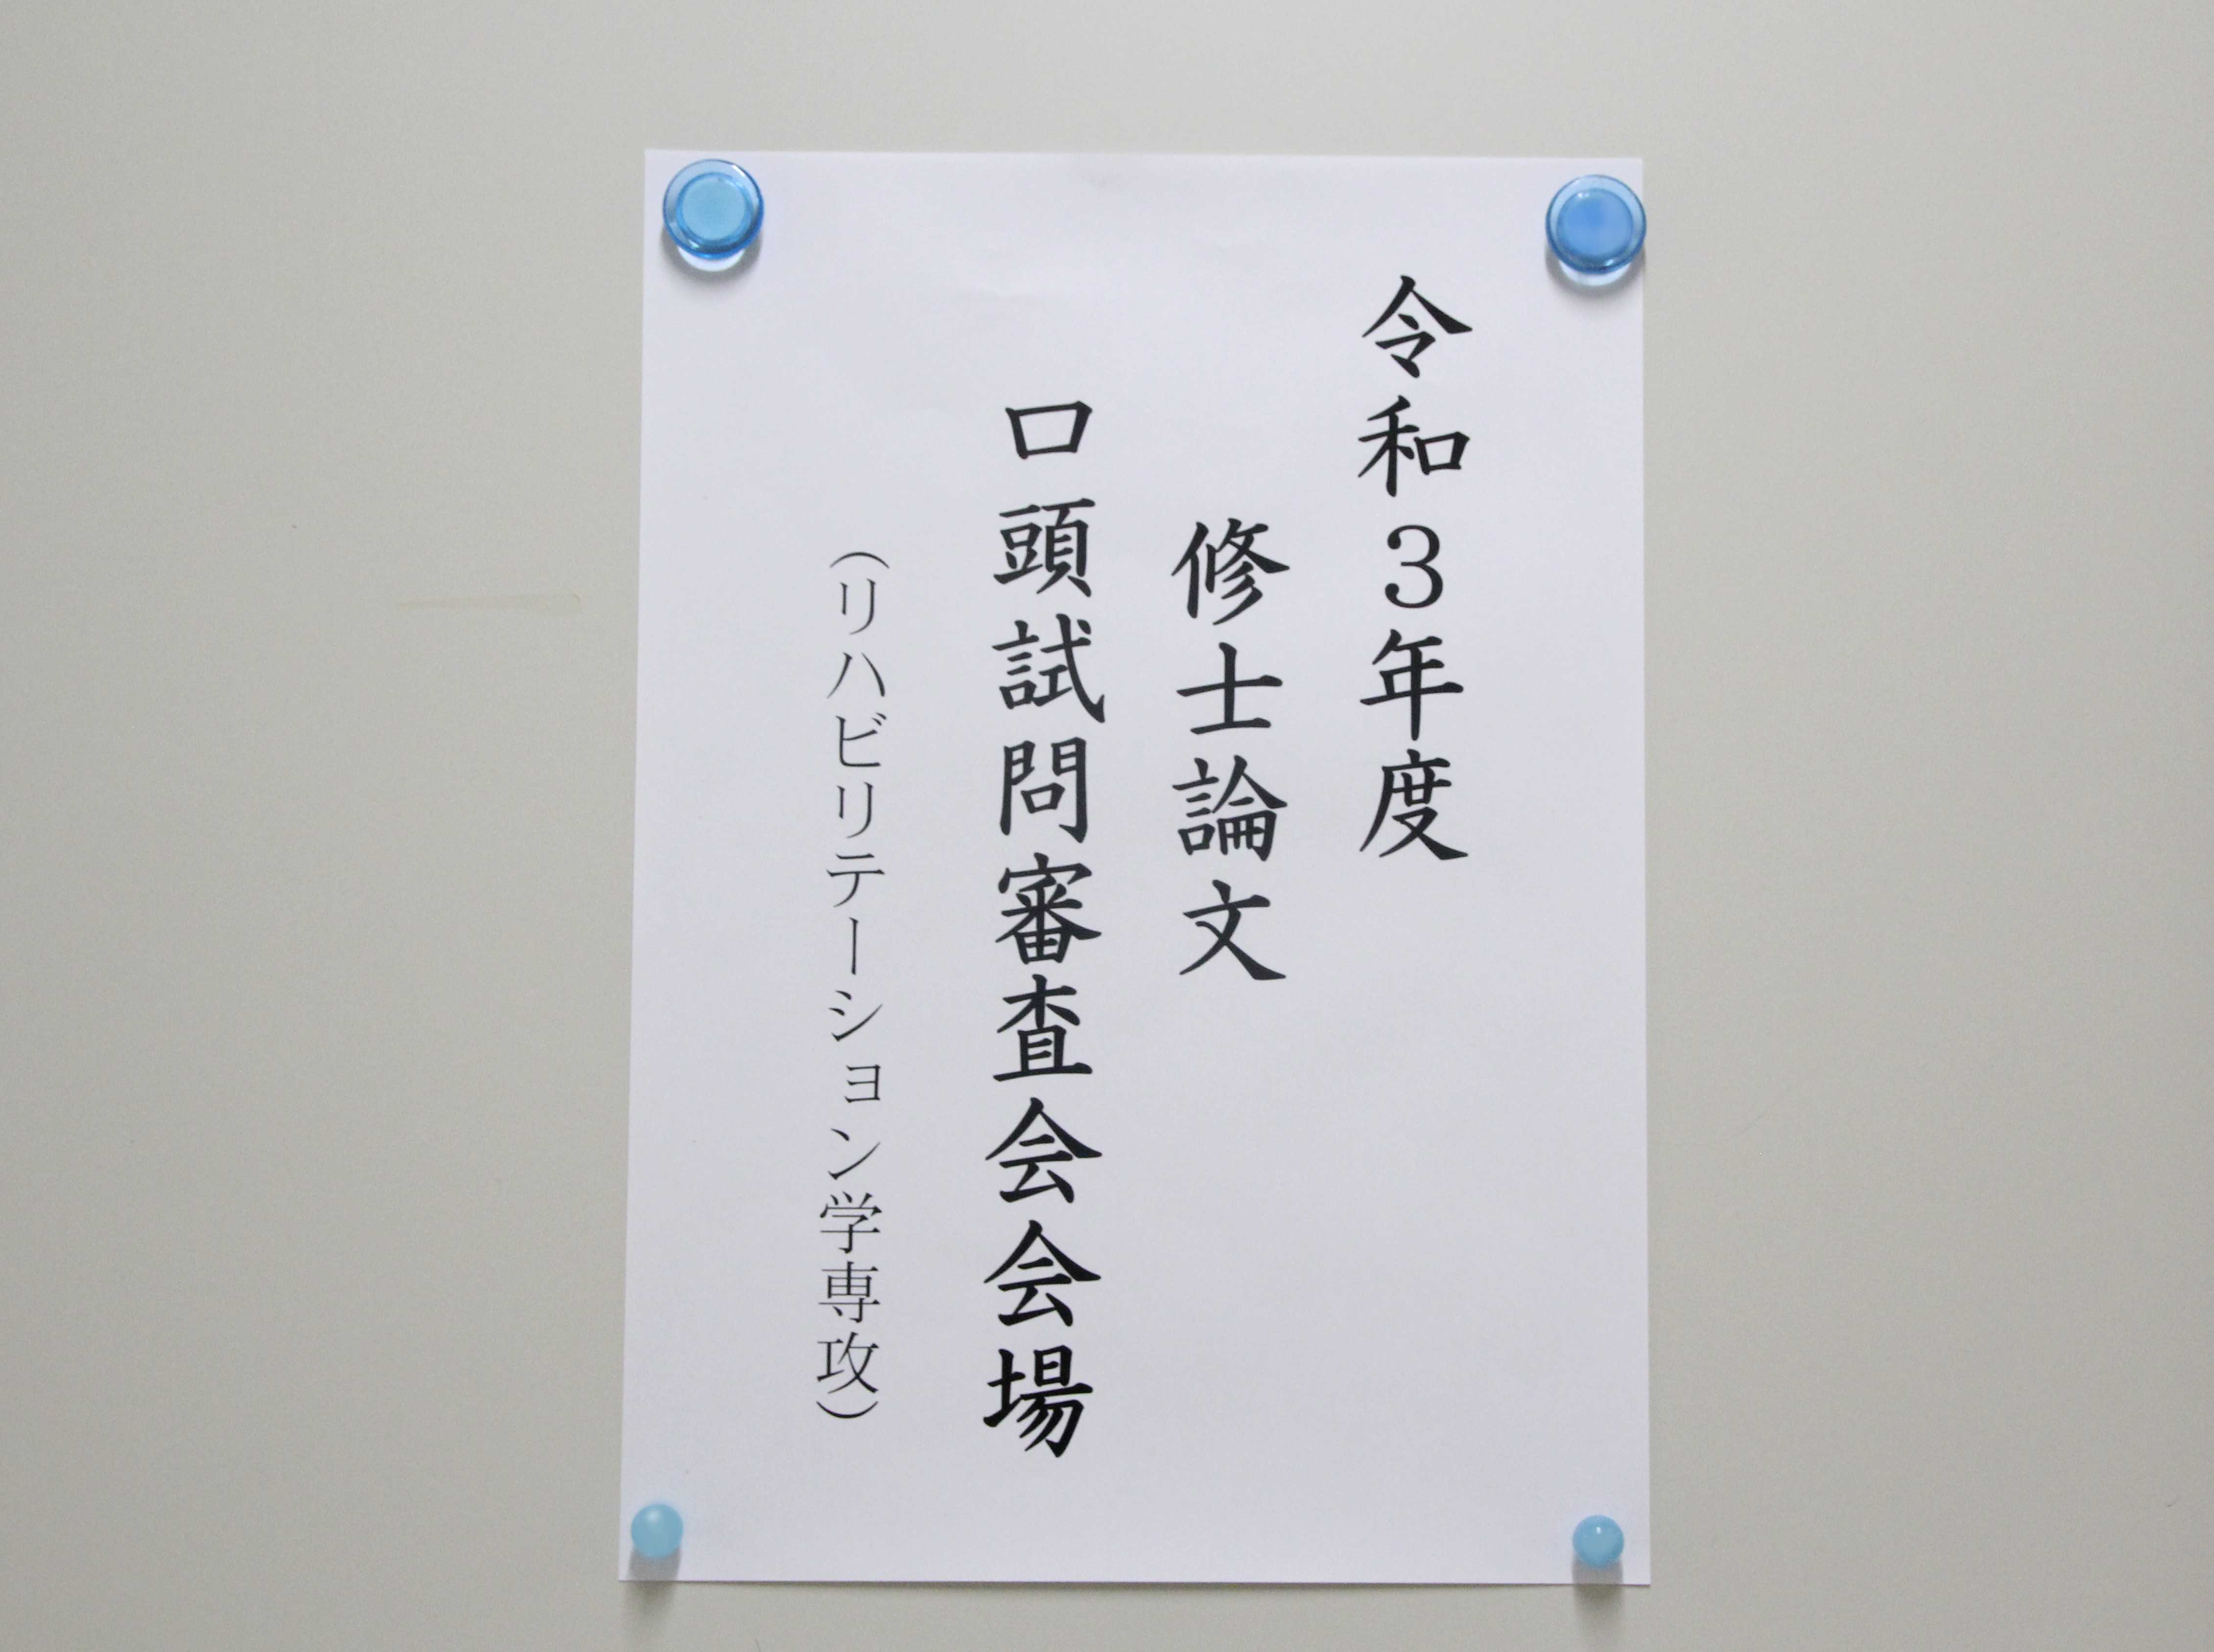 令和３年度
修士論文
口頭試問審査会会場
（リハビリテーション学専攻）